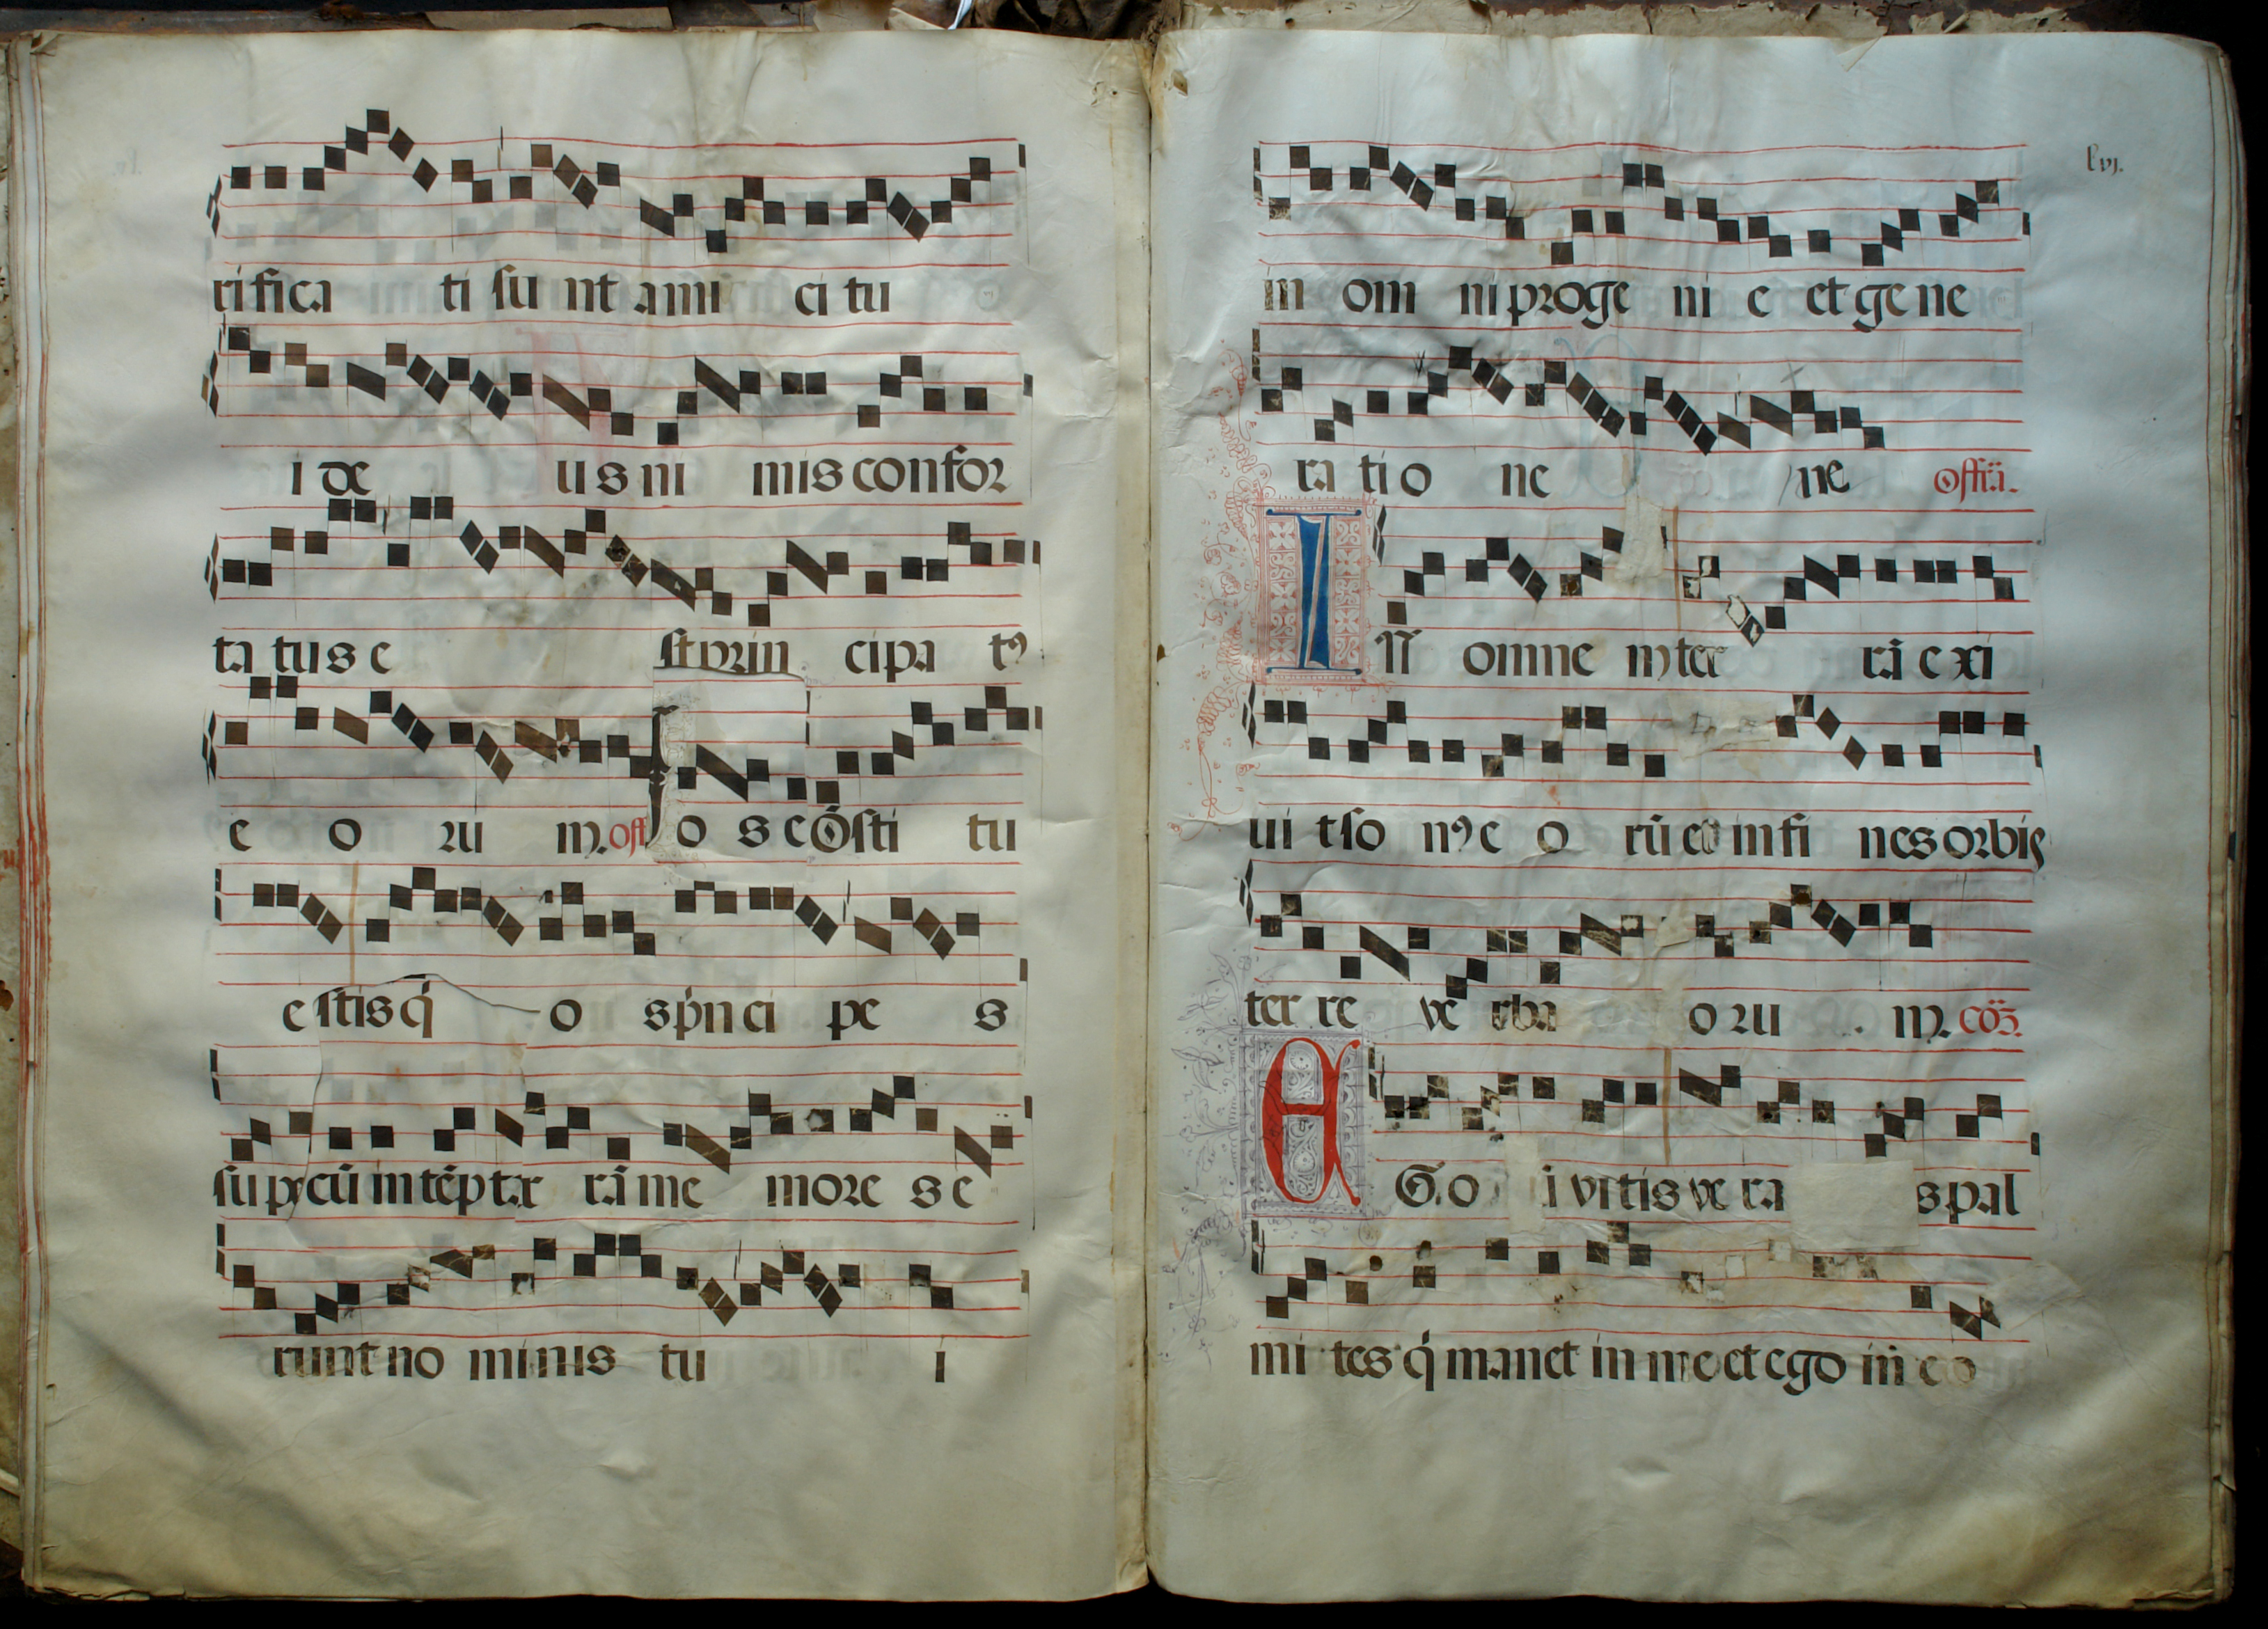 rifica ti su nt ami ci tu
i de us ni mis confor
ta tus e st prin cipa tꝰ
e o ru m. off o s cõsti tu
e stis q̃ o s prin ci pe s
su per cũ in tẽp ter rã me more s e
runt no minis tu i
lvj.
in om ni proge ni e et ge ne
ra ti o ne ne offa.
IN omne m ter rã e xi
ui t so nꝰ e o rũ et in fi nes orbis
ter re ve rba o ru m. cõ3.
EGo i vitis ve ra s pal
mi tes q̃ manet in me et ego in e o